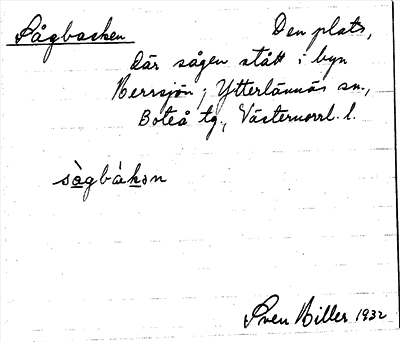 Sågbacken Den plats,
där sågen stått i byn
Herrsjön, Ytterlännäs sn.,
Boteå tg., Västernorrl. l.
sàgbàkən
Sven Hiller 1932